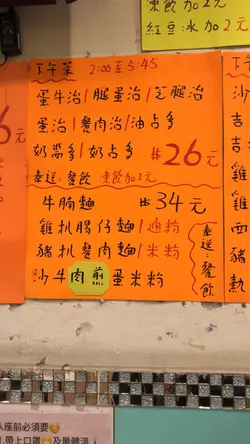 凍飲加2元
紅豆冰加2元
下午茶 2:00至5:45
蛋牛治/腿蛋治/芝腿治
蛋治/餐肉治/油占多
奶醬多/奶占多 #26元
奉送:餐飲 凍飲加2元
牛腩麵 #34元
豕扒腸仔麵/通粉
豬扒餐肉麵/米粉
沙牛肉煎蛋米粉
奉送:餐飲
6元
沙
吉
吉
雞
雞
西
熱
入座前必須要
1.帶上口罩 及量體溫